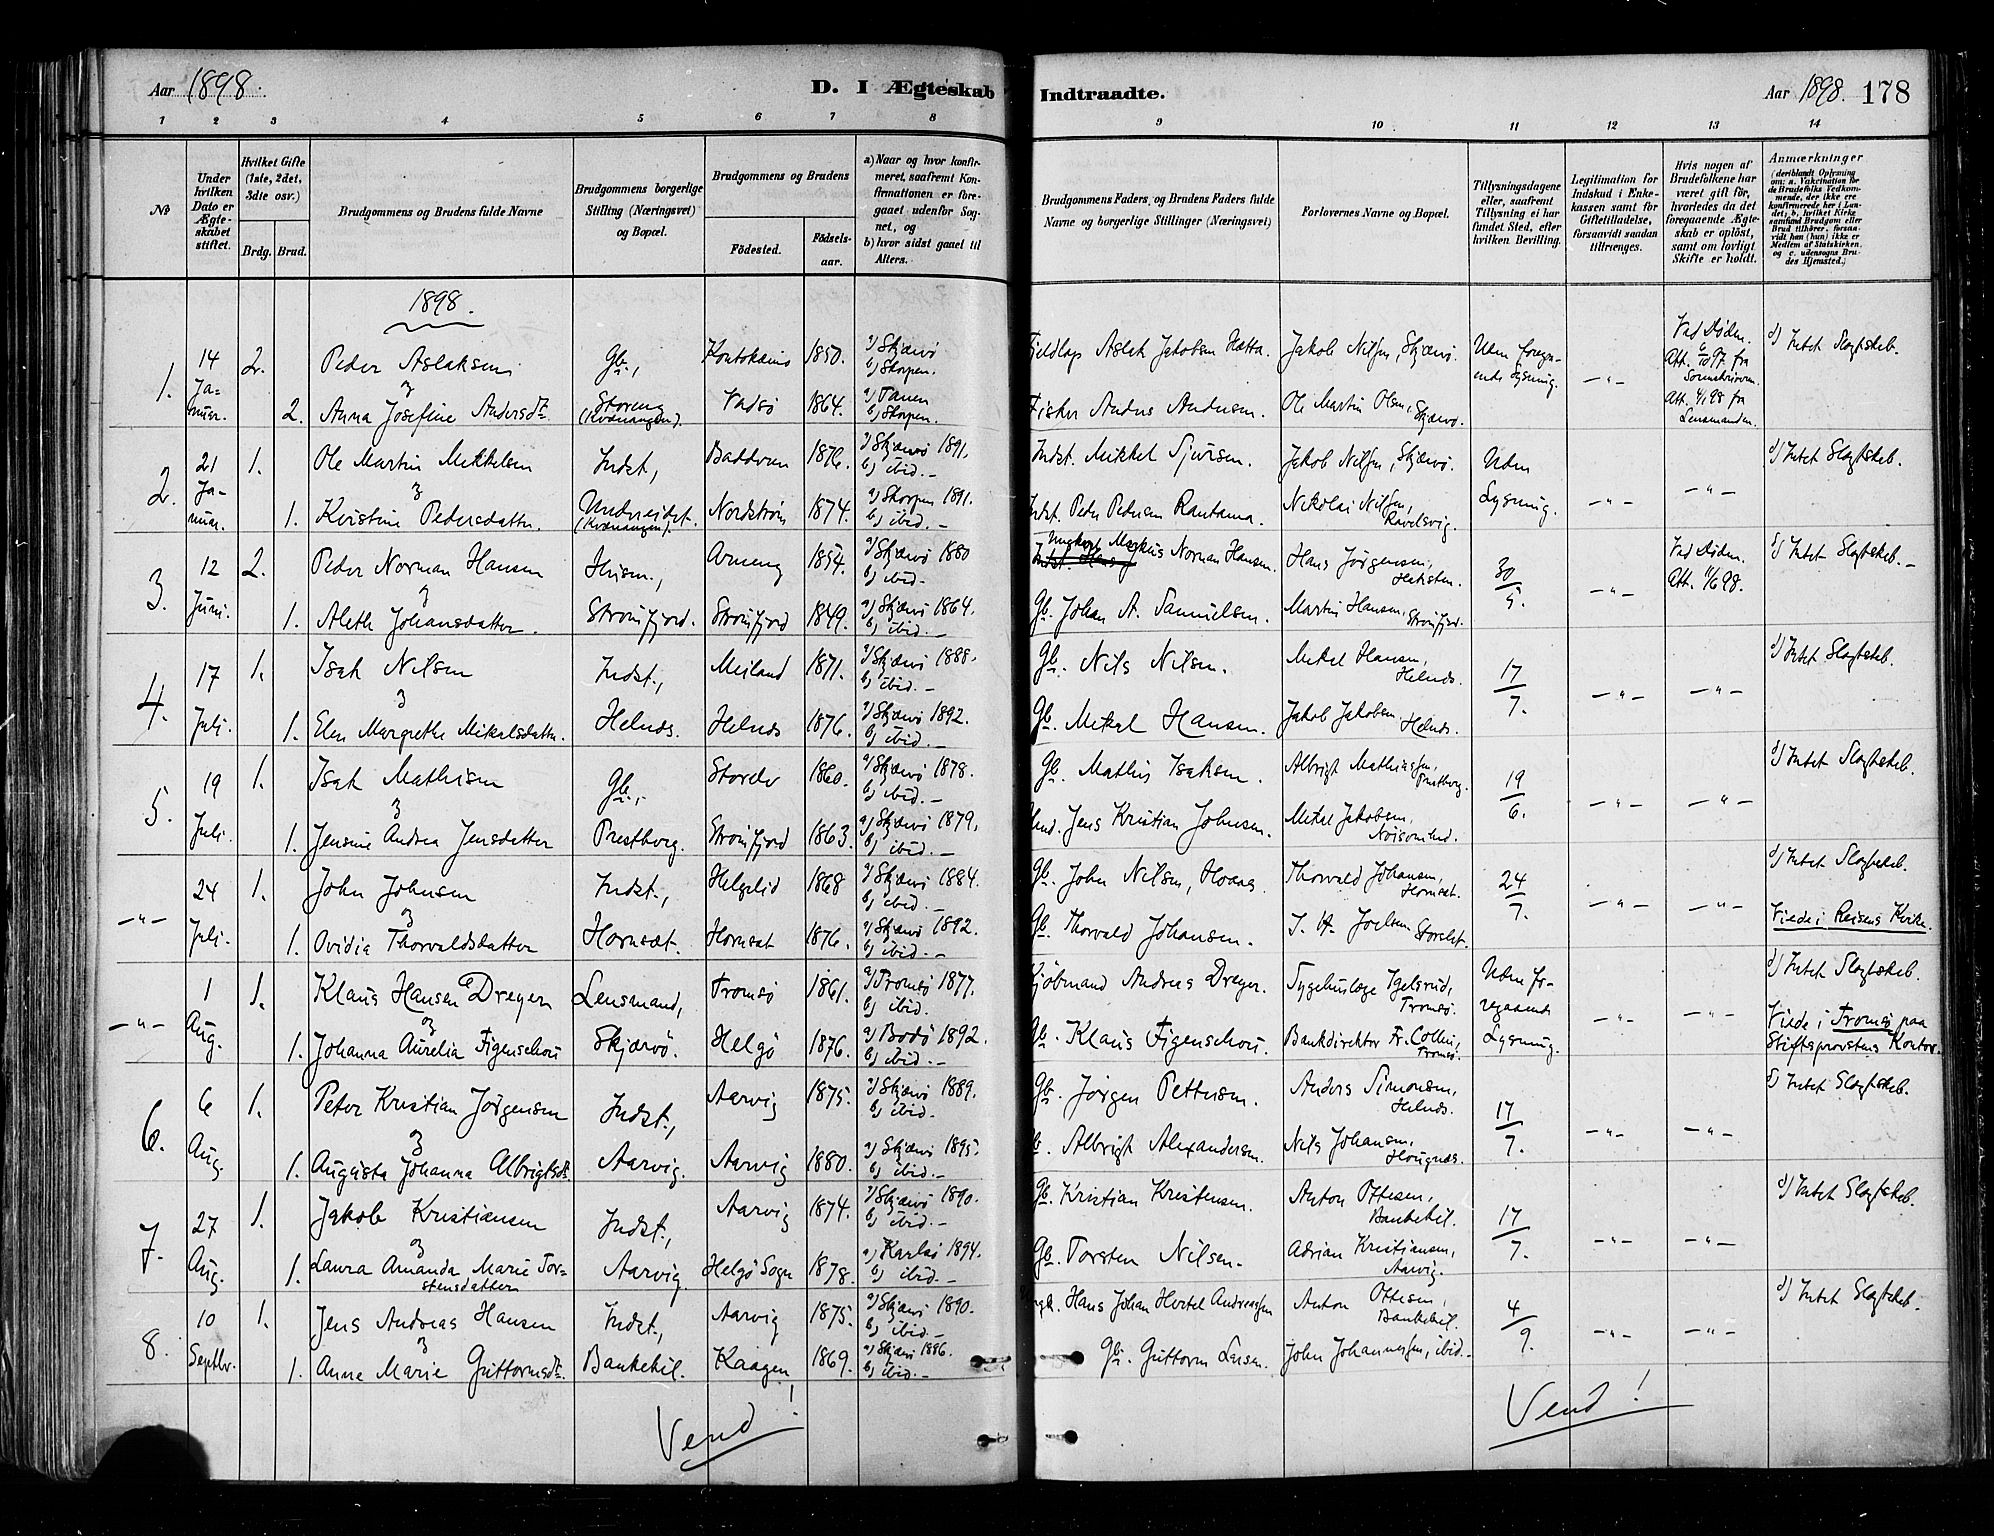 Aar 1898.
D. I Ægteskab Indtraadte.
Aar 1898. 178
1 2 3 4 5 6 7 8 9 10 11 12 13 14
No
Under hvilken Dato er Ægteskabet stiftet.
Hvilket Gifte (1ste, 2det, 3die osv.)
Brdg. Brud.
Brudgommens og Brudens fulde Navne
Brudgommens borgerlige Stilling (Næringsvei) og Bopæl.
Brudgommens og Brudens
Födested. Födselsaar.
a) Naar og hvor konfirmeret, saafremt Konfirmationen er foregaaet udenfor Sognet, og
b) hvor sidst gaaet til Alters.
Brudgommens Faders, og Brudens Faders fulde Navne og borgerlige Stillinger (Næringsvei)
Forlovernes Navne og Bopæl.
Tillysningsdagene eller, saafremt Tillysning ei har fundet Sted, efter hvilken Bevilling.
Legitimation for Indskud i Enkekassen samt for Giftetilladelse, forsaavidt saadan tiltrænges.
Hvis nogen af Brudefolkene har været gift för, hvorledes da det foregaaende Ægteskab er oplöst, samt om lovligt Skifte er holdt.
Anmærkninger (deriblandt Oplysning om: a. Vakcination for de Brudefolks Vedkommende, der ikke ere konfirmerede her i Landet; b. hvilket Kirkesamfund Brudgom eller Brud tilhörer, forsaavidt han (hun) ikke er Medlem af Statskirken, og c. udensogns Brudes Hjemsted.)
1898.
1. 14 Januar. 2. Peder Aslaksen Gb., Koutokeino 1850. a) Skjærvö b) Skorpen. Fjeldlap Aslak Jakobsen Hætta. Jakob Nilsen, Skjærvö. Uden foregaaende Lysning. —"— Ved Döden. Att. 6/10 97 fra Sorenskriveren. Att. 4/1 98 fra Lensmanden. d) Intet Slagtskab.
& 2. Anna Josefine Andersdtr Storeng (Kvænangen). Vadsö 1864. a) Tanen b) Skorpen. Fisker Anders Andersen. Ole Martin Olsen, Skjærvö.
2. 21 Januar. 1. Ole Martin Mikkelsen Indst., Badderen 1876. a) Skjærvö 1891. b) ibid.— Indst. Mikkel Sjursen. Jakob Nilsen, Skjærvö. Uden Lysning. —"— —"— d) Intet Slagtskab.
& 1. Kristine Pedersdatter. Undereidet. (Kvænangen). Nordström 1874. a) Skorpen 1891. b) ibid.— Indst. Peder Pedersen Rautama. Nikolai Nilsen, Ravelsvig.
3. 12 Juni. 2. Peder Norman Hansen Husm., Arneng 1854. a) Skjærvö 1880 b) ibid.— Ungkarl Markus Norman Hansen. Hans Jörgensen, Heksten. 30/5. —"— Ved Döden. Att. 11/6 98. d) Intet Slagtskab.—
& 1. Aleth Johansdatter. Strömfjord. Strömfjord 1849. a) Skjærvö 1864. b) ibid.— Gb. Johan A. Samuelsen. Martin Hansen, Strömfjord.
4. 17 Juli. 1. Isak Nilsen Indst., Meiland 1871. a) Skjærvö 1888. b) ibid.— Gb. Nils Nilsen. Mikal Hansen, Helnds. 17/7. —"— —"— d) Intet Slagtskab.
& 1. Elen Margrethe Mikalsdatter. Helnds. Helnds 1876. a) Skjærvö 1892. b) ibid.— Gb. Mikal Hansen. Jakob Jakobsen, Helnds.
5. 19 Juli. 1. Isak Mathisen Gb., Storelv 1860. a) Skjærvö 1878. b) ibid.— Gb. Mathis Isaksen. Albrigt Mathiassen, Prestborg. 19/6. —"— —"— d) Intet Slagtskab.
& 1. Jensine Andrea Jensdatter Prestborg. Strömfjord 1863. a) Skjærvö 1879. b) ibid.— Jens Kristian Johnsen. Mikal Jakobsen, Nöisomhed.
—"— 24 Juli. 1. John Johnsen Indst., Helgelid 1868 a) Skjærvö 1884. b) ibid.— Gb. John Nilsen, Hoaas. Thorvald Johansen, Hornsæt. 24/7. —"— —"— d) Intet Slagtskab.
& 1. Ovidia Thorvaldsdatter Hornsæt. Hornsæt 1876. a) Skjærvö 1892. b) ibid.— Gb. Thorvald Johansen. J. H. Joelsen Storslet. Viede i Reisens Kirke.
—"— 1 Aug. 1. Klaus Hansen Dreyer Lensmand, Tromsö 1861. a) Tromsö 1877. b) ibid. Kjöbmand Andreas Dreyer. Sygehuslæge Igelsrud, Tromsö. Uden foregaaende Lysning. —"— —"— d) Intet Slagtskab.
& 1. Johanna Aurelia Figenschou Skjærvö. Helgö 1876. a) Bodö 1892. b) ibid.— Gb. Klaus Figenschou. Bankdirektor Fr. Collin, Tromsö. Viede i Tromsö paa Stiftsprovstens Kontor.
6. 6 Aug. 1. Peter Kristian Jörgensen Indst., Aarvig 1875. a) Skjærvö 1889. b) ibid. Gb. Jörgen Pettersen. Anders Simonsen, Helnds. 17/7. —"— —"— d) Intet Slagtskab.
& 1. Augusta Johanna Albrigtsdtr. Aarvig. Aarvig 1880. a) Skjærvö 1895. b) ibid.— Albrigt Alexandersen. Nils Johansen, Hougnæs.
7. 27 Aug. 1. Jakob Kristiansen Indst., Aarvig 1874. a) Skjærvö 1890. b) ibid.— Gb. Kristian Kristensen. Anton Ottesen, Bankekil. 17/7. —"— —"— d) Intet Slagtskab.
& 1. Laura Amanda Marie Torstensdatter Aarvig. Helgö Sogn 1878. a) Karlsö 1894. b) ibid.— Gb. Torsten Nilsen. Adrian Kristiansen, Aarvig.
8. 10 Septbr. 1. Jens Andreas Hansen Indst., Aarvig 1875. a) Skjærvö 1890. b) ibid.— Hans Johan Hertel Andreassen Anton Ottesen, Bankekil. 4/9. —"— —"— d) Intet Slagtskab.
& 1. Anne Marie Guttormsdtr. Bankekil. Kaagen 1869. a) Skjærvö 1886. b) ibid.— Gb. Guttorm Larsen. John Johannessen, ibid.—
Vend! Vend!